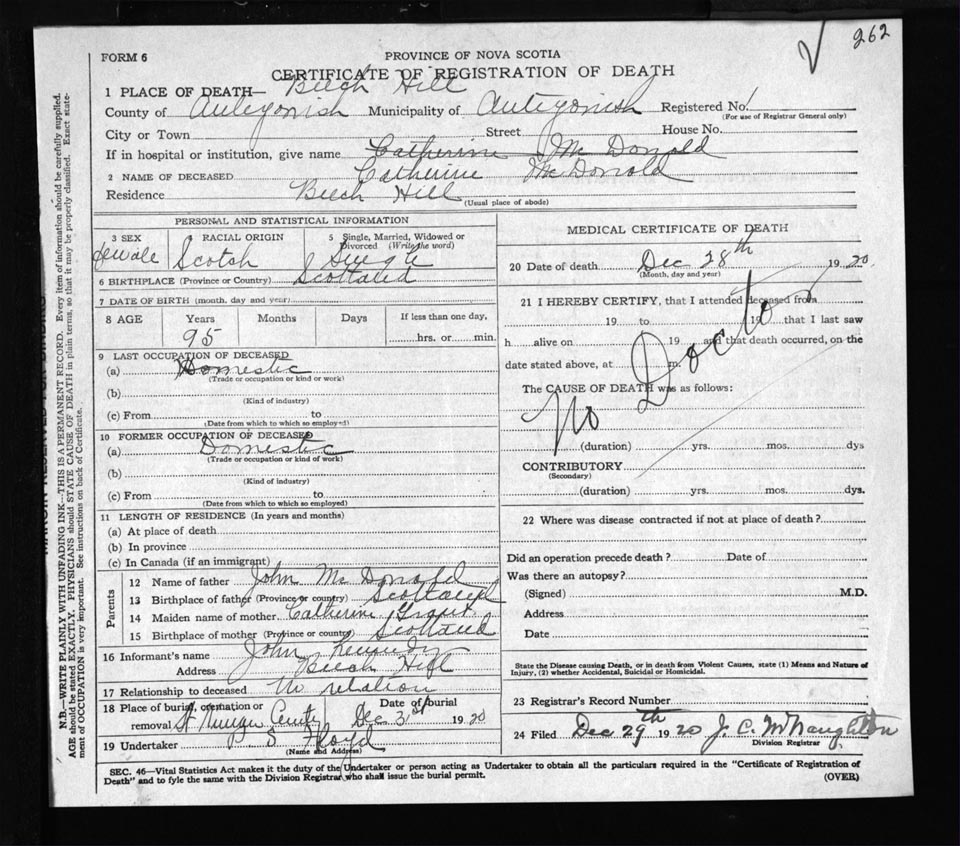 262
FORM 6
PROVINCE OF NOVA SCOTIA
CERTIFICATE OF REGISTRATION OF DEATH
1 PLACE OF DEATH— Beech Hill
County of Antigonish Municipality of Antigonish Registered No.
(For use of Registrar General only)
City or Town Street House No.
If in hospital or institution, give name Catherine McDonald
2 NAME OF DECEASED Catherine McDonald
Residence Beech Hill
(Usual place of abode)
PERSONAL AND STATISTICAL INFORMATION
3 SEX RACIAL ORIGIN 5 Single, Married, Widowed or Divorced (Write the word)
Female Scotch Single
6 BIRTHPLACE (Province or Country) Scotland
7 DATE OF BIRTH (month, day and year)
8 AGE Years Months Days If less than one day,
95 hrs. or min.
9 LAST OCCUPATION OF DECEASED
(a) Domestic
(Trade or occupation or kind of work)
(b)
(Kind of industry)
(c) From to
(Date from which to which so employed)
10 FORMER OCCUPATION OF DECEASED
(a) Domestic
(Trade or occupation or kind of work)
(b)
(Kind of industry)
(c) From to
(Date from which to which so employed)
11 LENGTH OF RESIDENCE (In years and months)
(a) At place of death
(b) In province
(c) In Canada (if an immigrant)
Parents
12 Name of father John McDonald
13 Birthplace of father (Province or country) Scotland
14 Maiden name of mother Catherine Grant
15 Birthplace of mother (Province or country) Scotland
16 Informant's name John Kennedy
Address Beech Hill
17 Relationship to deceased No relation
18 Place of burial, cremation or Date of burial
removal St Dec 31st 1920
19 Undertaker P. S. Floyd
(Name and Address)
MEDICAL CERTIFICATE OF DEATH
20 Date of death Dec 28th 1920
(Month, day and year)
21 I HEREBY CERTIFY, that I attended deceased from
19 to 19 that I last saw
h alive on 19 and that death occurred, on the
date stated above, at m.
The CAUSE OF DEATH was as follows:
No Doctor
(duration) yrs. mos. dys
CONTRIBUTORY
(Secondary)
(duration) yrs. mos. dys.
22 Where was disease contracted if not at place of death?
Did an operation precede death? Date of
Was there an autopsy?
(Signed) M.D.
Address
Date
State the Disease causing Death, or in death from Violent Causes, state (1) Means and Nature of
Injury, (2) whether Accidental, Suicidal or Homicidal.
23 Registrar's Record Number
24 Filed Dec 29th 1920 J. C. McNaughton
Division Registrar
SEC. 46—Vital Statistics Act makes it the duty of the Undertaker or person acting as Undertaker to obtain all the particulars required in the "Certificate of Registration of
Death" and to fyle the same with the Division Registrar who shall issue the burial permit. (OVER)
N.B.—WRITE PLAINLY WITH UNFADING INK—THIS IS A PERMANENT RECORD. Every item of information should be carefully supplied.
AGE should be stated EXACTLY. PHYSICIANS should STATE CAUSE OF DEATH in plain terms, so that it may be properly classified. Exact state-
ment of OCCUPATION is very important. See instructions on back of Certificate.